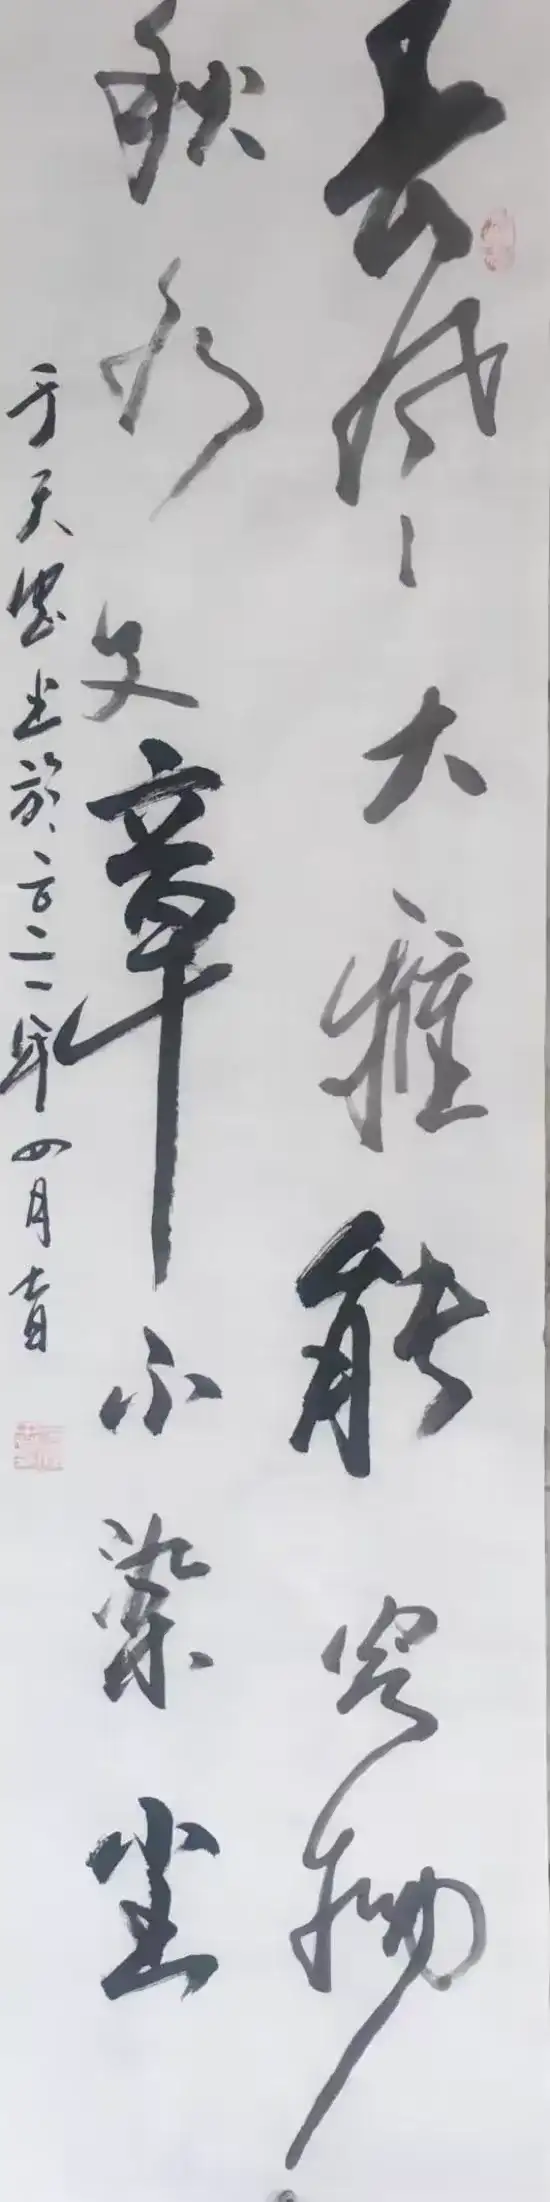 春风大雅能容物
秋水文章不染尘
于天忠书於二〇二一年四月青